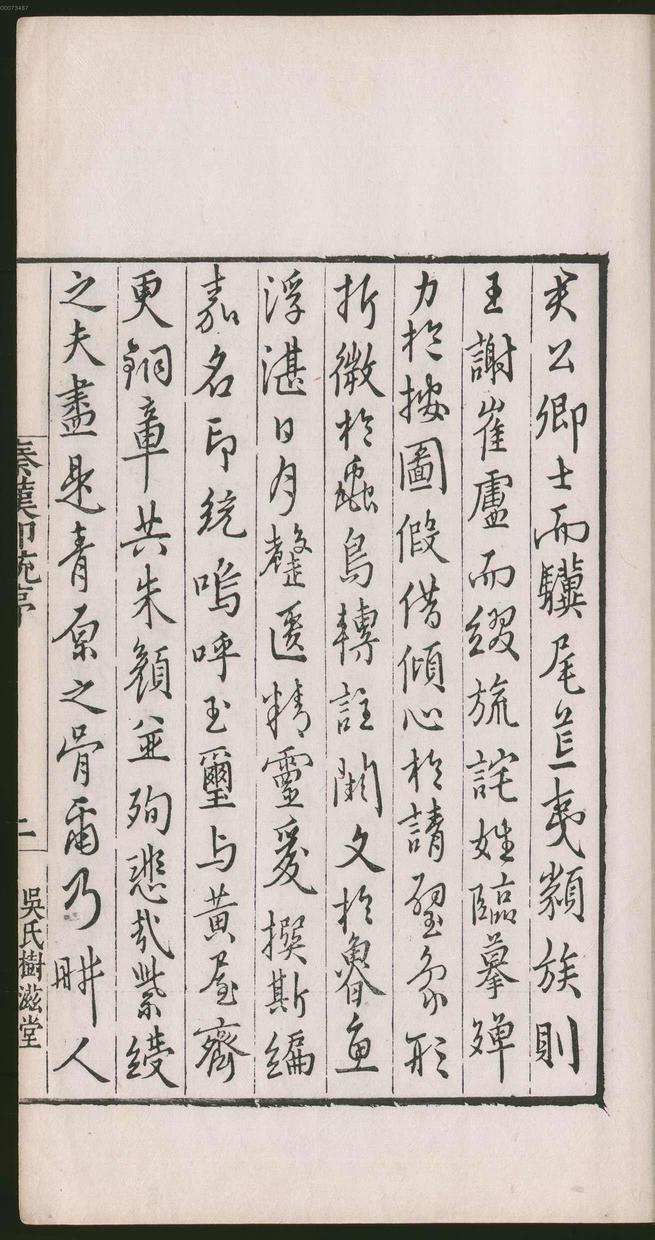 公卿士而驥尾夷類族則
王謝崔盧而綴旒詫姓臨摹殫
力於按圖假借傾心於請璧象形
折微於蟲鳥轉註闕文於魯魚
浮湛日月匿精靈爰撰斯編
嘉名印統嗚呼玉璽与黄屋齊
更銅章共朱顏並殉悲哉紫綬
之夫盡是青原之骨爾乃畊人
秦漢印統序
二
吳氏樹滋堂
00073487